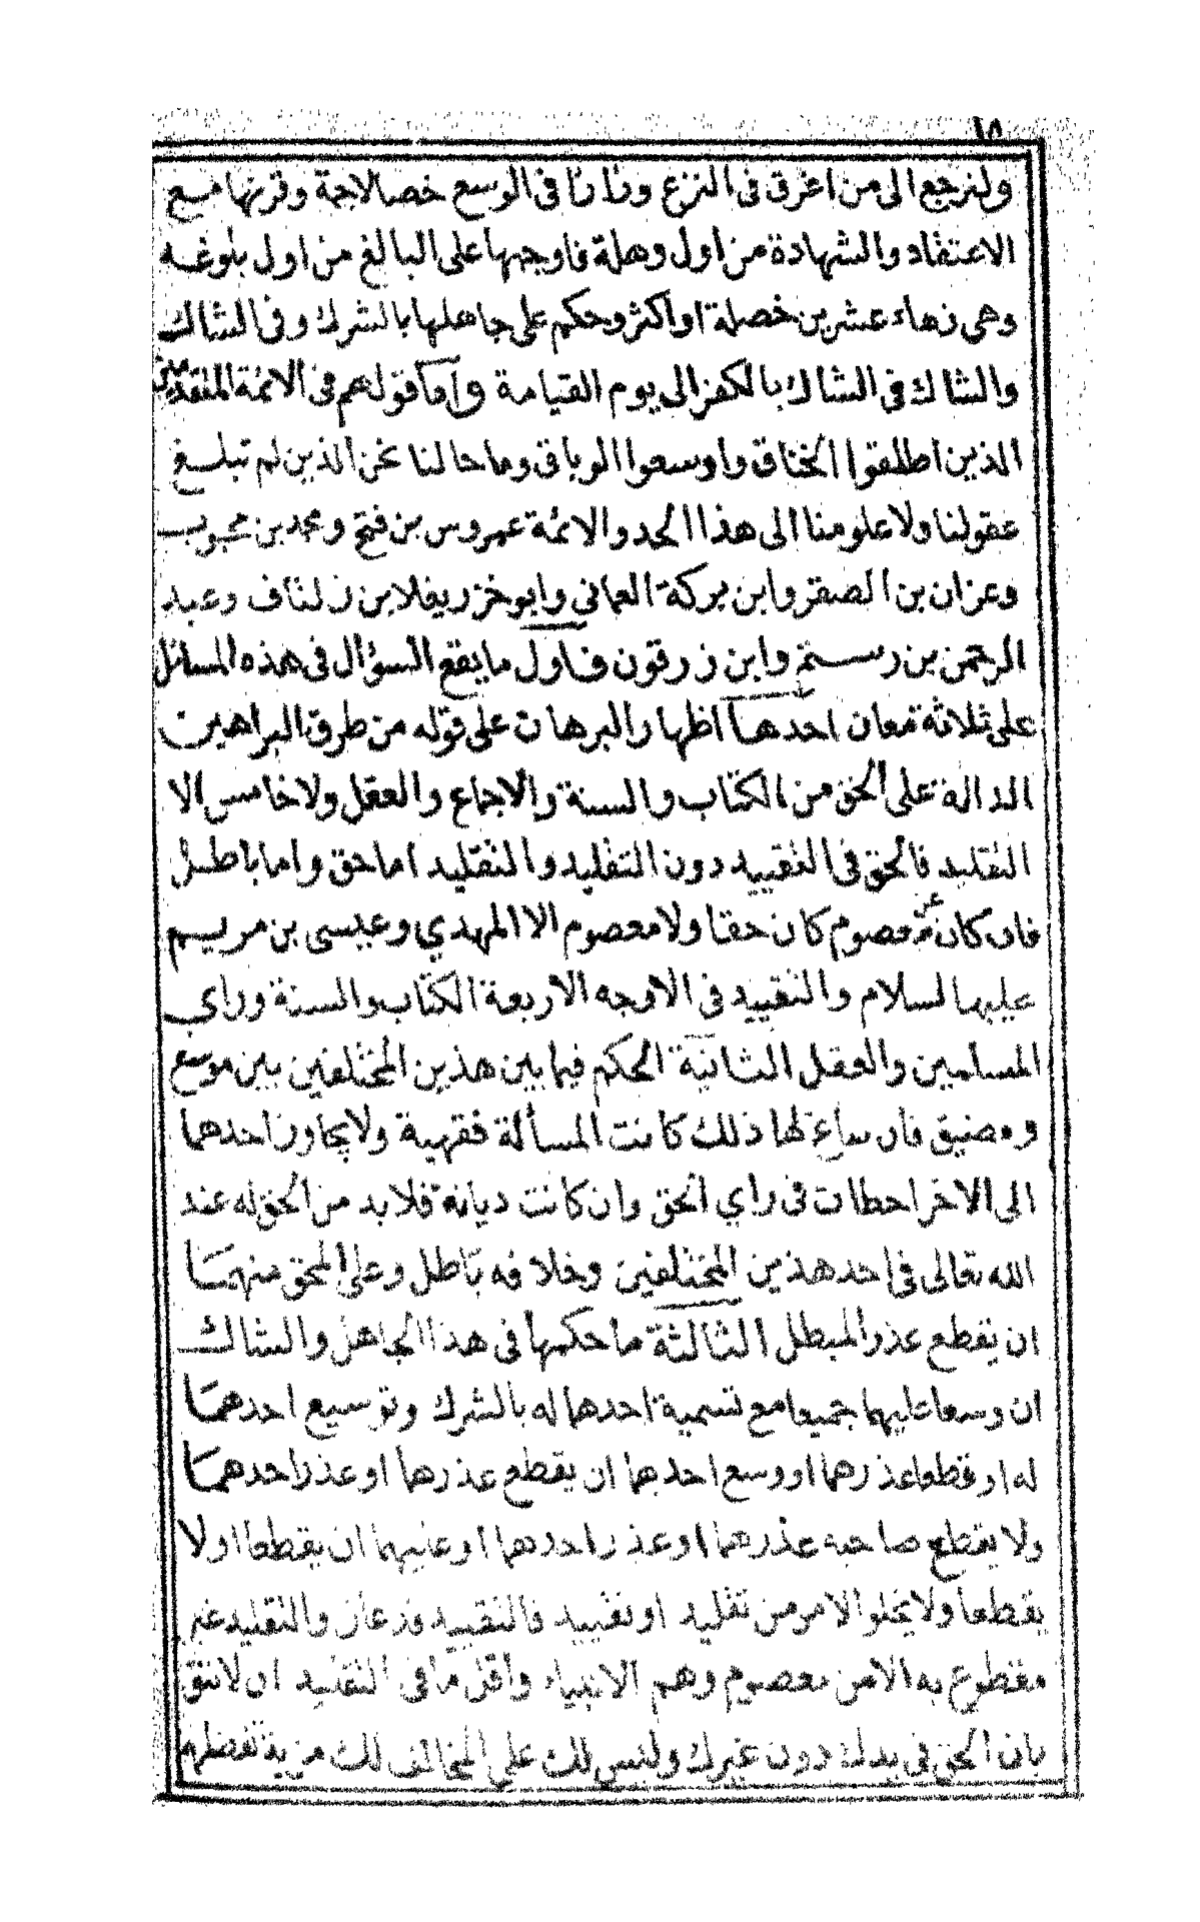 ١٥
ولنرجع الى من اغرق فى النزع وزاد نا فى الوسع خصالا جمة وقرنها مع
الاعتقاد والشهادة من اول وهلة فاوجبها على البالغ من اول بلوغه
وهى زهاء عشرين خصلة او اكثر وحكم على جاهلها بالشرك وفى الشاك
والشاك فى الشاك بالكفر الى يوم القيامة واما قولهم فى الائمة المتقدمين
الذين اطلقوا الخناق واوسعوا الوباقى وما حالنا نحن الذين لم تبلغ
عقولنا ولا علومنا الى هذا الحد والائمة عمروس بن فتح ومحمد بن محبوب
وعزان بن الصقر وابن بركة العمانى وابو خزر يغلا بن زلتاف وعبد
الرحمن بن رستم وابن زرقون فاول ما يقع السؤال فى هذه المسائل
على ثلاثة معان احدها اظهار البرهان على قوله من طرق البراهين
الدالة على الحق من الكتاب والسنة والاجماع والعقل ولا خامس الا
التقليد فالحق فى التقييد دون التقليد والتقليد اما حق واما باطل
فان كان عن معصوم كان حقا ولا معصوم الا المهدي وعيسى بن مريم
عليها لسلام والتقييد فى الاوجه الاربعة الكتاب والسنة وراي
المسلمين والعقل الثانية الحكم فيما بين هذين المختلفين بين موسع
ومضيق فان ساغ لها ذلك كانت المسألة فقهية ولا يجاوز احدهما
الى الاخر احطات فى راي الحق وان كانت ديانة فلا بد من الحق له عند
الله تعالى فى احد هذين المختلفين وخلافه باطل وعلى المحق منهما
ان يقطع عذر المبطل الثالثة ما حكمها فى هذا الجاهل والشاك
ان وسعا عليهما جميعا مع تسمية احدهما له بالشرك وتوسيع احدهما
له او قطعا عذرهما او وسع احدهما ان يقطع عذرهما او عذر احدهما
ولا يقطع صاحبه عذرهما او عذر احدهما او عليهما ان يقطعا اولا
يقطعا ولا يخلو الامر من تقليد او تقييد فالتقييد والتقليد غير
مقطوع به الا من معصوم وهم الانبياء واقل ما فى التقليد ان لا تثق
بان الحق فى يدك دون غيرك وليس لك على المخالف لك مزية تفضلهم